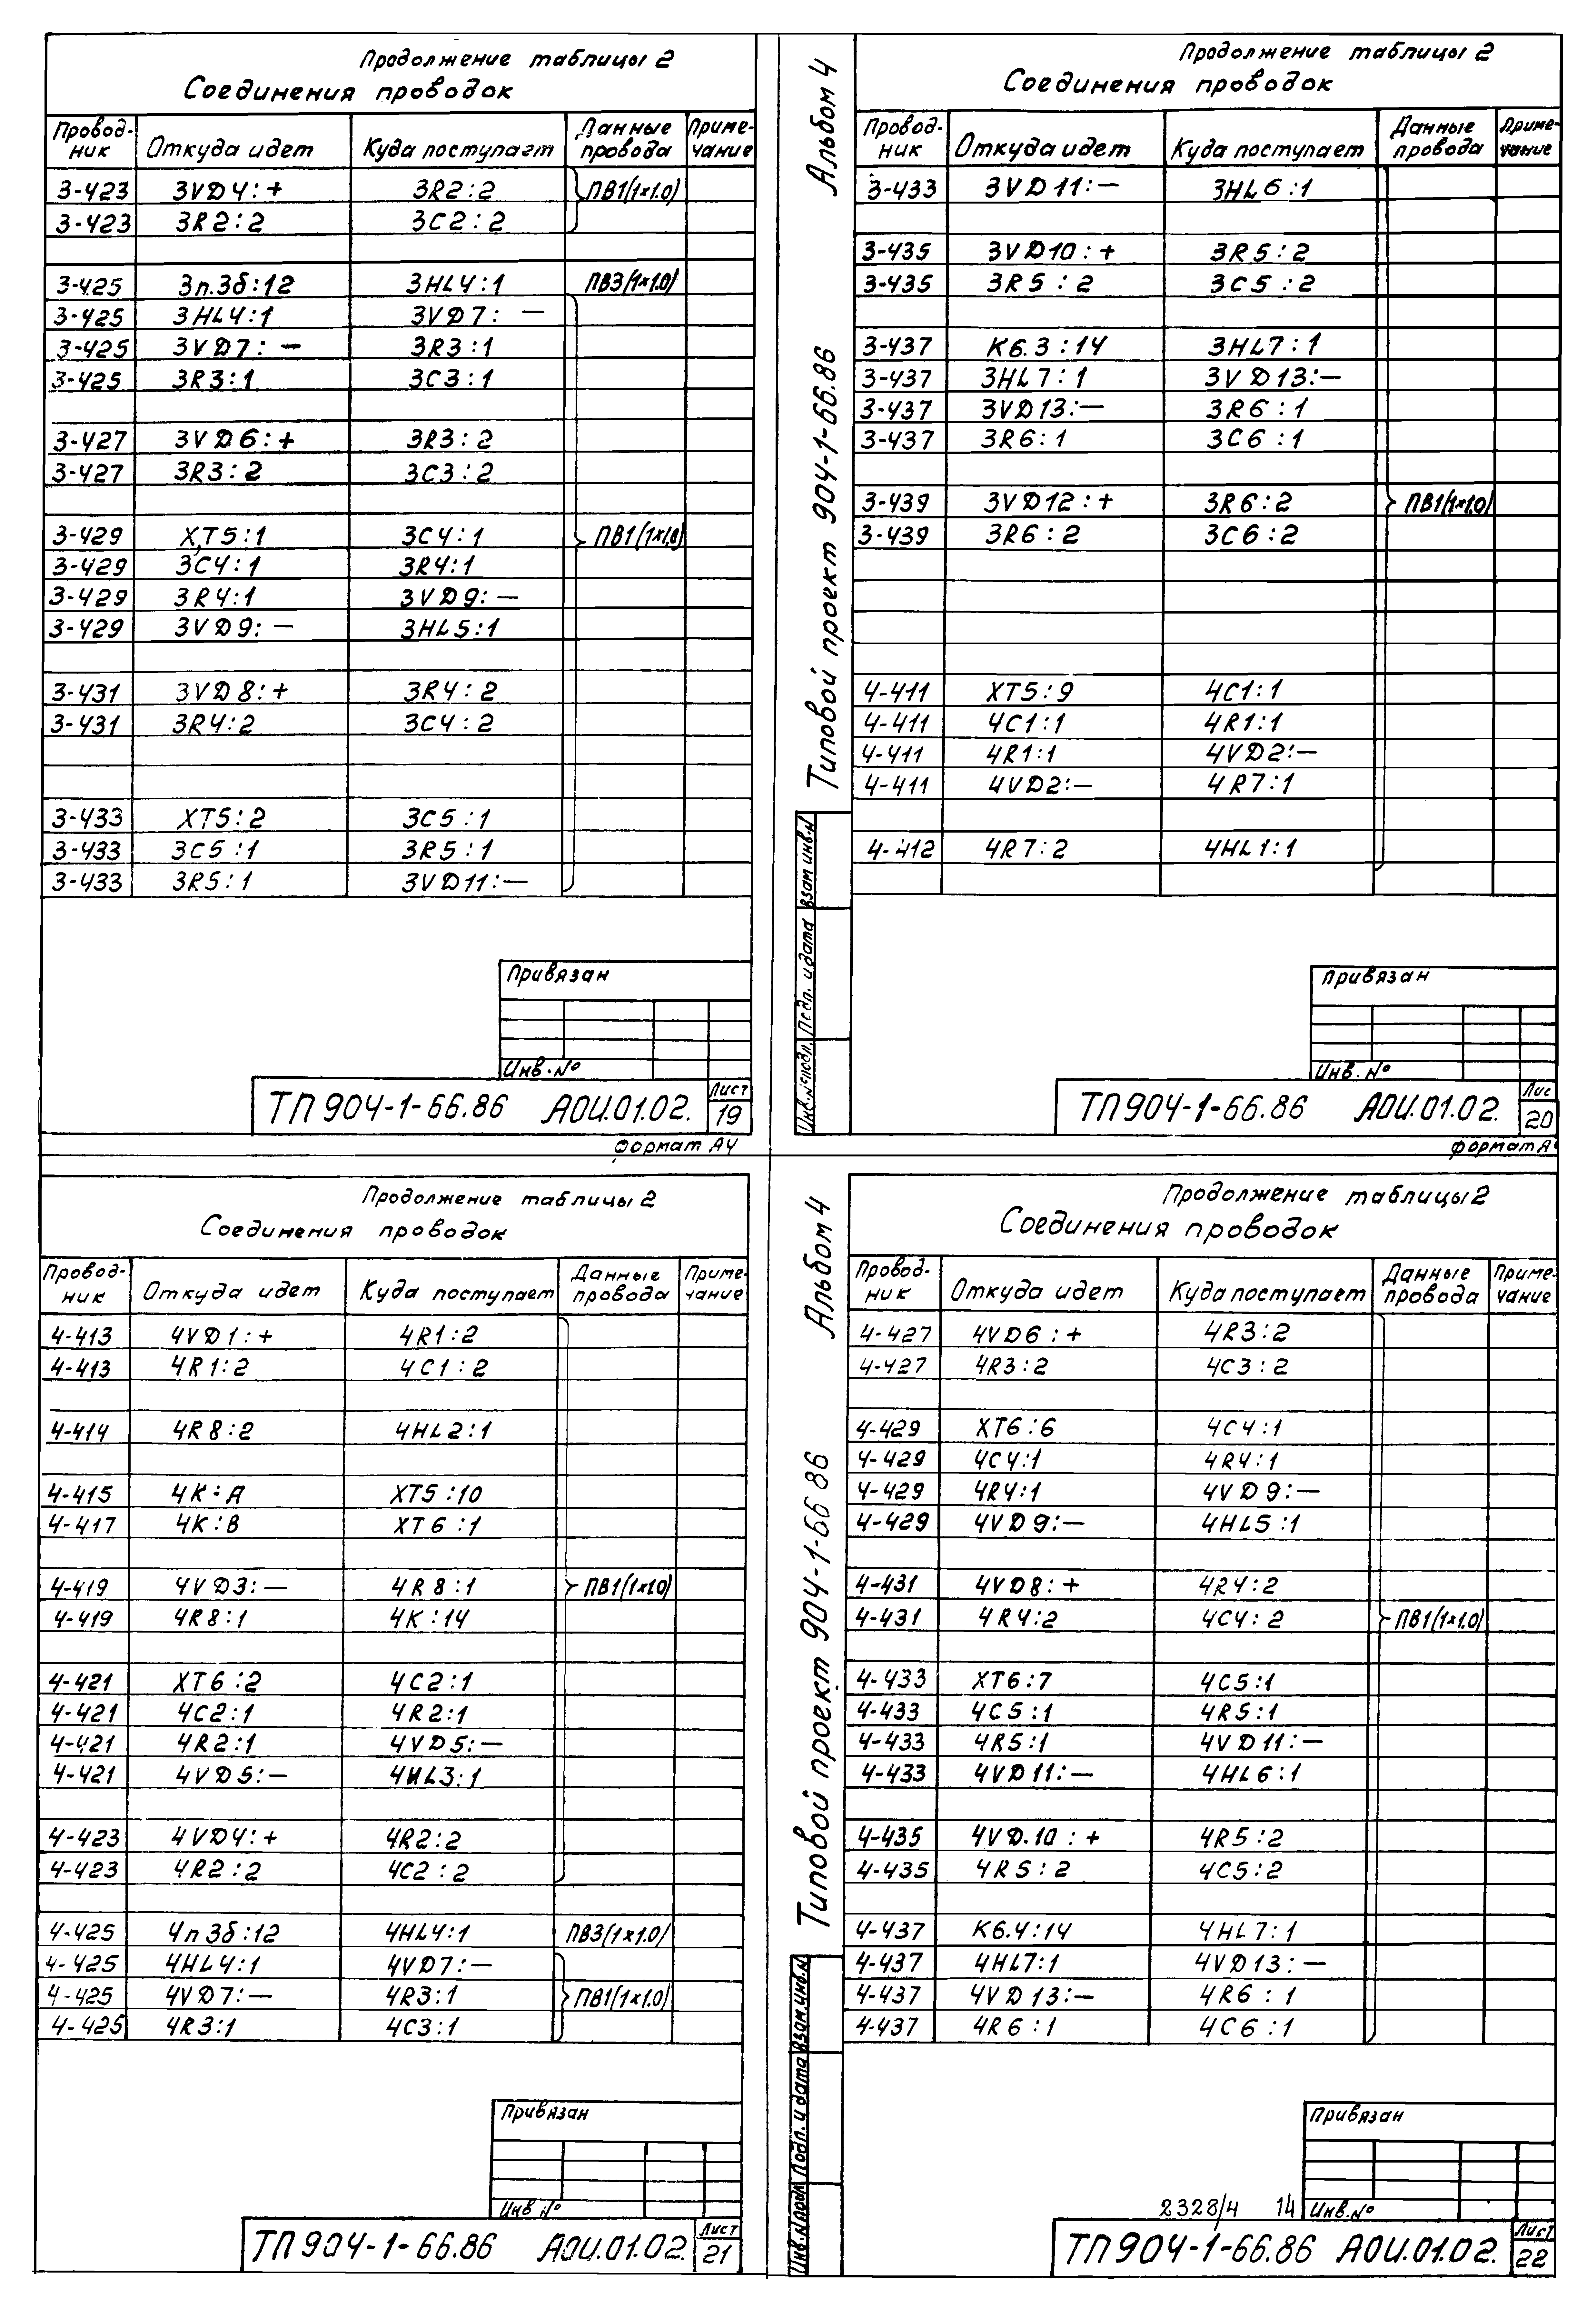 Продолжение таблицы 2
Соединения проводок
Провод-ник Откуда идет Куда поступает Данные провода Приме-чание
3-423 3VD4:+ 3R2:2 ПВ1(1×1.0)
3-423 3R2:2 3C2:2
3-425 3п.3б:12 3HL4:1 ПВ3(1×1.0)
3-425 3HL4:1 3VD7:—
3-425 3VD7:— 3R3:1
3-425 3R3:1 3C3:1
3-427 3VD6:+ 3R3:2
3-427 3R3:2 3C3:2
3-429 XT5:1 3C4:1 ПВ1(1×1.0)
3-429 3C4:1 3R4:1
3-429 3R4:1 3VD9:—
3-429 3VD9:— 3HL5:1
3-431 3VD8:+ 3R4:2
3-431 3R4:2 3C4:2
3-433 XT5:2 3C5:1
3-433 3C5:1 3R5:1
3-433 3R5:1 3VD11:—
Привязан
Инв.№
ТП 904-1-66.86 АОИ.01.02. Лист 19
формат А4
Альбом 4
Типовой проект 904-1-66.86
Взам инв.№
Подп. и дата
Инв.№подл.
Продолжение таблицы 2
Соединения проводок
Провод-ник Откуда идет Куда поступает Данные провода Приме-чание
3-433 3VD11:— 3HL6:1
3-435 3VD10:+ 3R5:2
3-435 3R5:2 3C5:2
3-437 K6.3:14 3HL7:1
3-437 3HL7:1 3VD13:—
3-437 3VD13:— 3R6:1
3-437 3R6:1 3C6:1
3-439 3VD12:+ 3R6:2 ПВ1(1×1.0)
3-439 3R6:2 3C6:2
4-411 XT5:9 4C1:1
4-411 4C1:1 4R1:1
4-411 4R1:1 4VD2:—
4-411 4VD2:— 4R7:1
4-412 4R7:2 4HL1:1
Привязан
Инв.№
ТП 904-1-66.86 АОИ.01.02. Лис 20
формат А4
Продолжение таблицы 2
Соединения проводок
Провод-ник Откуда идет Куда поступает Данные провода Приме-чание
4-413 4VD1:+ 4R1:2
4-413 4R1:2 4C1:2
4-414 4R8:2 4HL2:1
4-415 4K:A XT5:10
4-417 4K:B XT6:1
4-419 4VD3:— 4R8:1 ПВ1(1×1.0)
4-419 4R8:1 4K:14
4-421 XT6:2 4C2:1
4-421 4C2:1 4R2:1
4-421 4R2:1 4VD5:—
4-421 4VD5:— 4HL3:1
4-423 4VD4:+ 4R2:2
4-423 4R2:2 4C2:2
4-425 4п3б:12 4HL4:1 ПВ3(1×1.0)
4-425 4HL4:1 4VD7:—
4-425 4VD7:— 4R3:1 ПВ1(1×1.0)
4-425 4R3:1 4C3:1
Привязан
Инв №
ТП 904-1-66.86 АОИ.01.02. Лист 21
Альбом 4
Типовой проект 904-1-66 86
Взам.инв.№
Подп. и дата
Инв.№подл
Продолжение таблицы 2
Соединения проводок
Провод-ник Откуда идет Куда поступает Данные провода Приме-чание
4-427 4VD6:+ 4R3:2
4-427 4R3:2 4C3:2
4-429 XT6:6 4C4:1
4-429 4C4:1 4R4:1
4-429 4R4:1 4VD9:—
4-429 4VD9:— 4HL5:1
4-431 4VD8:+ 4R4:2
4-431 4R4:2 4C4:2 ПВ1(1×1.0)
4-433 XT6:7 4C5:1
4-433 4C5:1 4R5:1
4-433 4R5:1 4VD11:—
4-433 4VD11:— 4HL6:1
4-435 4VD.10:+ 4R5:2
4-435 4R5:2 4C5:2
4-437 K6.4:14 4HL7:1
4-437 4HL7:1 4VD13:—
4-437 4VD13:— 4R6:1
4-437 4R6:1 4C6:1
Привязан
2328/4 14 Инв.№
ТП 904-1-66.86 АОИ.01.02. Лист 22